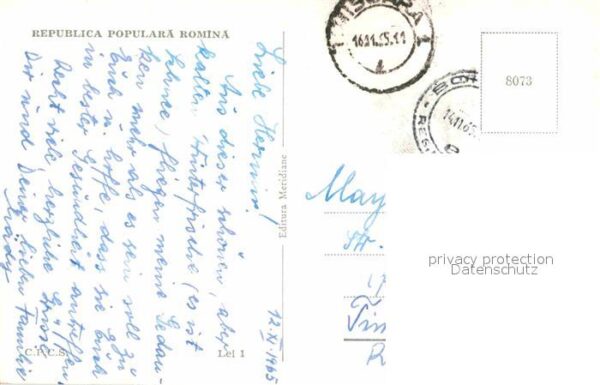 REPUBLICA POPULARĂ ROMÎNĂ
12.XI.1965
Liebe Hermine!
Aus dieser schönen, aber
kalten, Winterfrische (es ist
Schnee) fliegen meine Gedan-
ken mehr als es sein soll zu
Euch u. hoffe, dass sie Euch
in bester Gesundheit antreffen.
Recht viele herzliche Grüsse
Dir und Deiner lieben Familie
Mädy
C.P.C.S.
Lei 1
Editura Meridiane
16.11.65.11
14.11.65
8073
May
Str.
Tim
R
privacy protection
Datenschutz